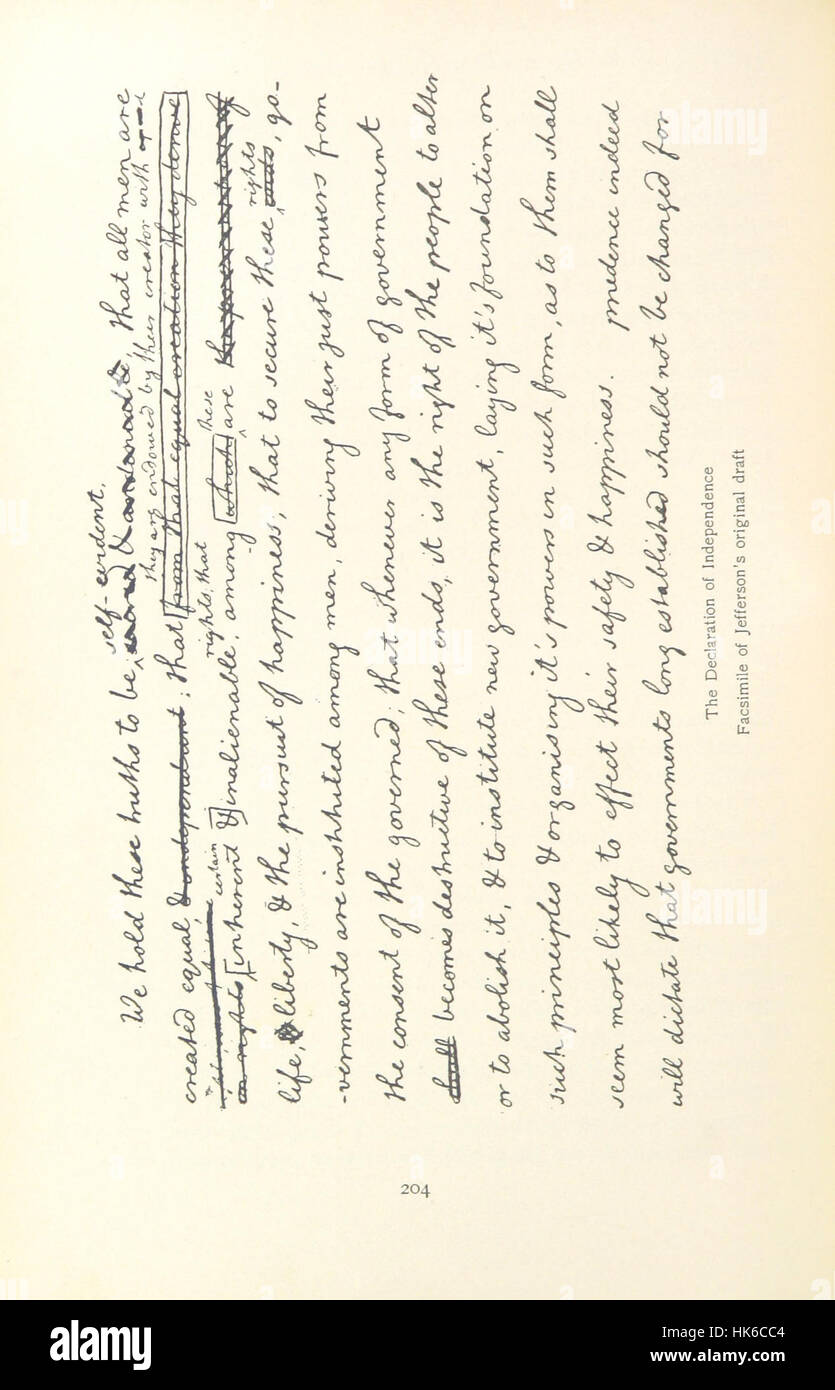 We hold these truths to be self-evident,
sacred & undeniable, that all men are
they are endowed by their creator with
created equal & independent; that from that equal creation they derive
certain rights, that these
in rights inherent & inalienable, among which are the preservation of
rights
life, & liberty, & the pursuit of happiness; that to secure these ends, go-
-vernments are instituted among men, deriving their just powers from
the consent of the governed; that whenever any form of government
shall becomes destructive of these ends, it is the right of the people to alter
or to abolish it, & to institute new government, laying it's foundation on
such principles & organising it's powers in such form, as to them shall
seem most likely to effect their safety & happiness. prudence indeed
will dictate that governments long established should not be changed for
The Declaration of Independence
Facsimile of Jefferson's original draft
204
alamy
alamy
Image ID: HK6CC4
www.alamy.com